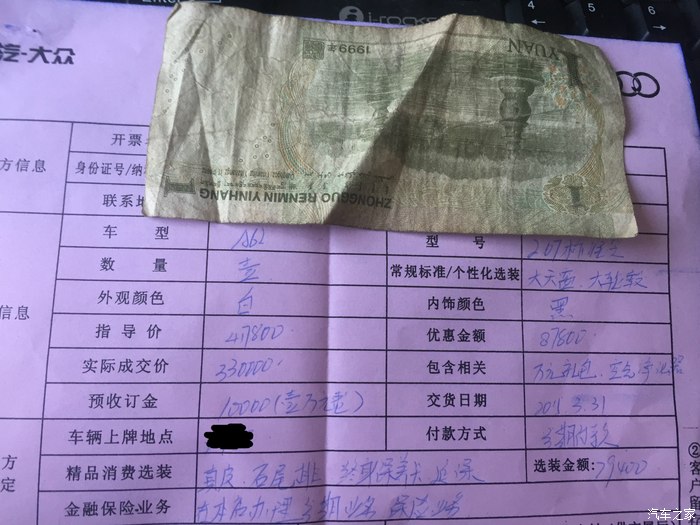 i-rocks
汽-大众
1YUAN
1999年
ZHONGGUO RENMIN YINHANG
1
开票
方信息
身份证号/纳
联系地
车 型 A6L 型 号
数 量 壹 常规标准/个性化选装 大天窗、大轮毂
信息
外观颜色 白 内饰颜色 黑
指 导 价 417800 优惠金额 87800
实际成交价 330000 包含相关 万元礼包、空气净化器
预收订金 10000(壹万元整) 交货日期 3.31
车辆上牌地点 付款方式 分期付款
方
定
精品消费选装 真皮、 选装金额:79400
金融保险业务 在本店办理分期业务 保险业务
②
客
户
汽车之家